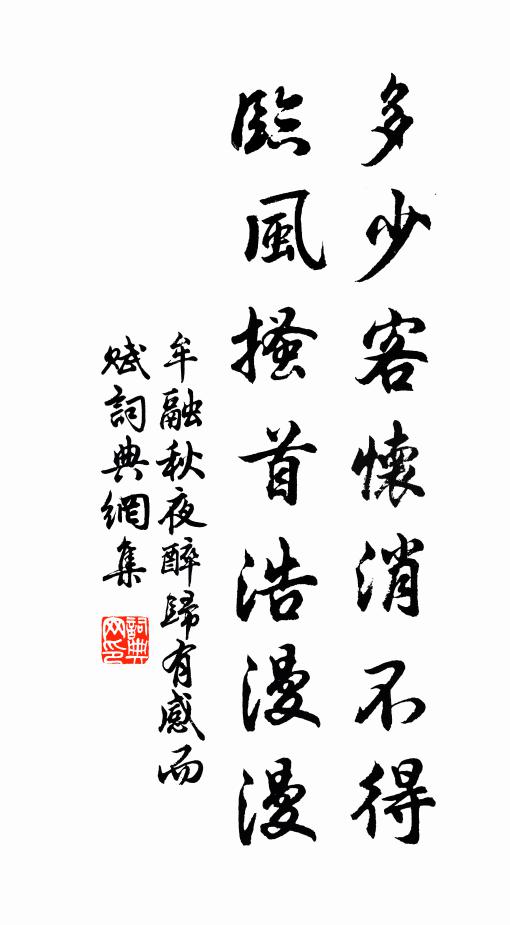 多少客懷消不得
臨風搔首浩漫漫
牟融秋夜醉歸有感而
賦詞典網集
詞典網印